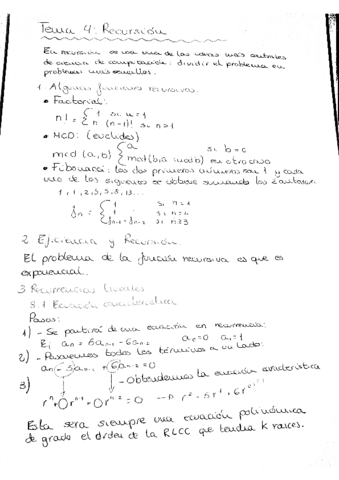 Tema 4: Recursión
En recursión se usa una de las ideas más centrales
de ciencia de computación: dividir el problema en
problemas más sencillos.
1. Algunas funciones recursivas.
• Factorial:
n! = { 1 si n=1
n (n-1)! si n>1
• MCD: (euclides)
mcd (a,b) { a si b=0
mcd(b, a mod b) en otro caso
• Fibonacci: los dos primeros números son 1 y cada
uno de los siguientes se obtiene sumando los 2 anteriores.
1, 1, 2, 3, 5, 8, 13...
fn = { 1 si n=1
1 si n=2
fn-1 + fn-2 si n>2
2. Eficiencia y Recursión.
El problema de la función recursiva es que es
exponencial.
3. Recurrencias lineales
3.1 Ecuación característica
Pasos:
1) - Se partirá de una ecuación en recurrencia:
Ej: an = 5an-1 - 6an-2 a0=0 a1=1
2) - Pasaremos todos los términos a un lado:
an - 5an-1 + 6an-2 = 0
3) - Obtendremos la ecuación característica
Esta sera siempre una ecuación polinómica
de grado el orden de la RLCC que tendra k raíces.